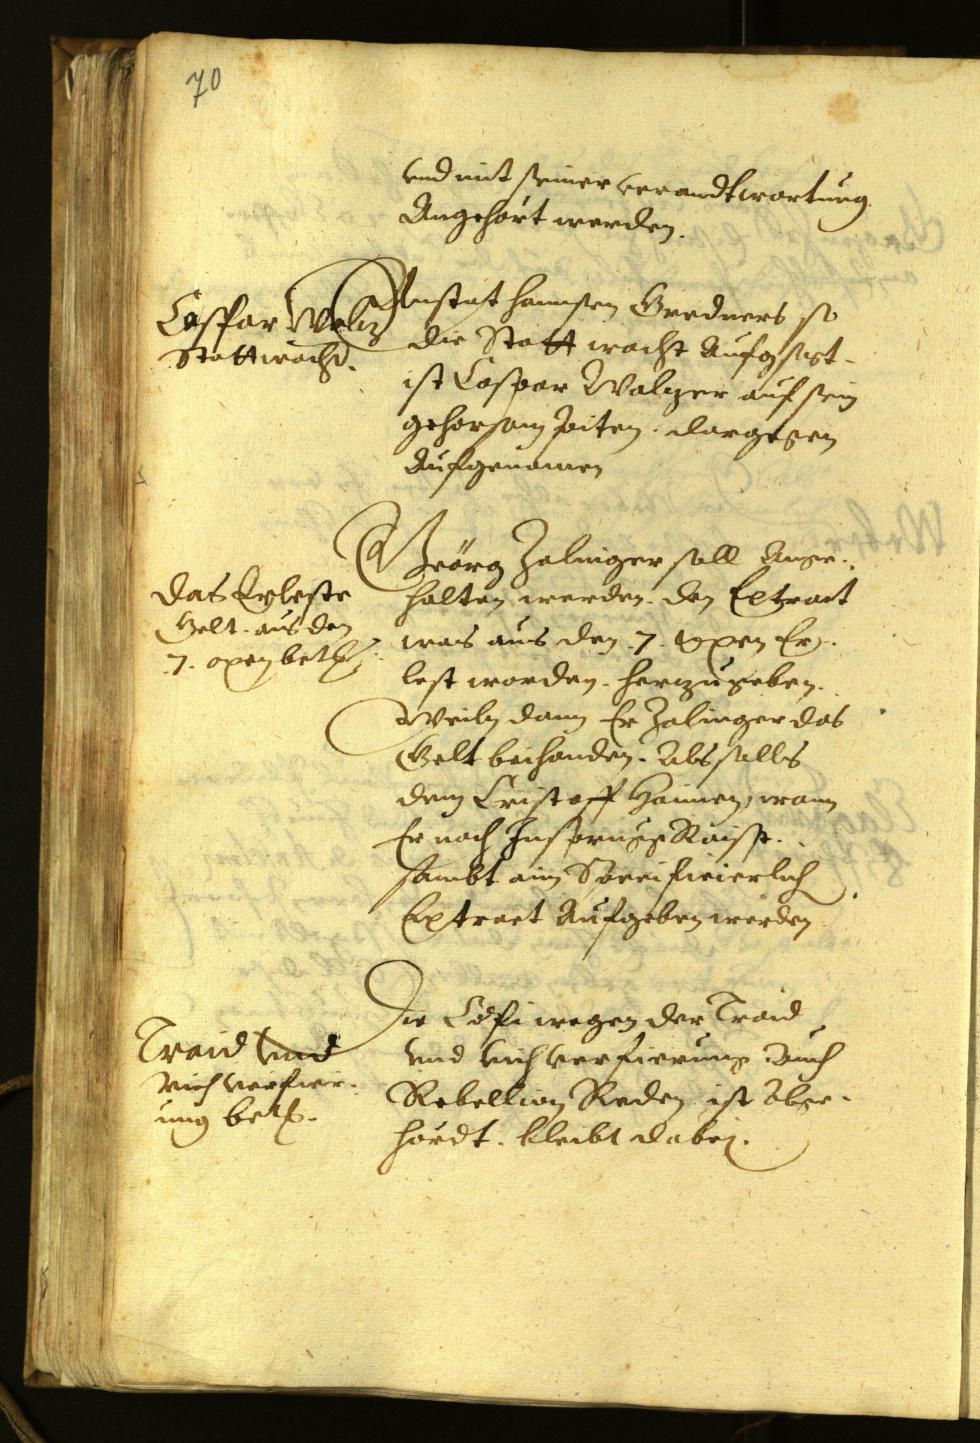 70
vnd mit seiner verandtwortung
Angehört werden.
Caspar Walz
Stattwacht.
Anstat Hannsen Gredners so
die Statt wacht Aufgesagt
ist Caspar Walzer auf sein
gehorsam piten. dargegen
Aufgenomen
Das Erleste
Gelt. aus den
7. oxen betr.
Georg Zalinger soll Ange-
halten werden. den Extract
was aus den 7. Oxen Er-
lest worden. herzugeben.
Weiln dann Er Zalinger das
Gelt beihanden. Als soll es
dem Cristoff Hannen, wann
Er nach Insprugg Raist.
sambt aim Specificierlich
Extract Aufgeben werden
Traid vnd
Vich verfier-
ung betr.
Die wegen der Traid
vnd Vich verfierung. Auch
Rebellion Reden ist Abge-
hördt. bleibt dabei.